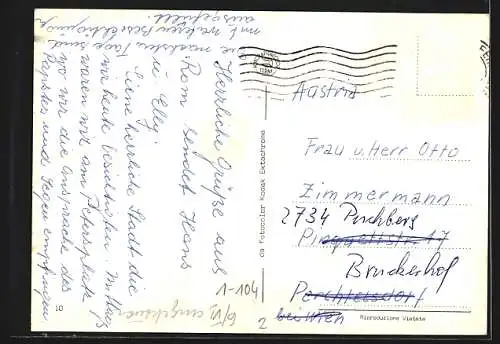 Herrliche Grüße aus
Rom sendet Hans
u. Elly
Eine herrliche Stadt die
wir heute besichtigten. Mittags
waren wir am Petersplatz
wo wir die Ansprache des
Papstes und Segen empfingen
Die nächsten Tage sind
mit weiteren Besichtigungen
ausgefüllt.
da Fotocolor Kodak Ektachrome
Austria
Frau u. Herr Otto
Zimmermann
2734 Puchberg
17
Bruckerhof
Perchtoldsdorf
bei Wien
1-104
10
2
Riproduzione Vietata